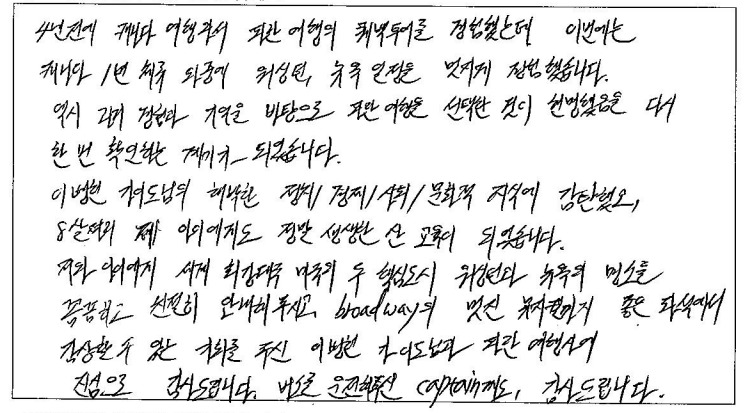 4년전에 캐나다 여행와서 파란 여행의 퀘벡투어를 경험했는데 이번에는
캐나다 1년 체류 와중에 워싱턴, 뉴욕 일정을 멋지게 경험했습니다.
역시 과거 경험과 기억을 바탕으로 파란 여행을 선택한 것이 현명했음을 다시
한 번 확인하는 계기가 되었습니다.
이병헌 가이드님의 해박한 정치/경제/사회/문화적 지식에 감탄했고,
8살짜리 제 아이에게도 정말 생생한 산 교육이 되었습니다.
저와 아이에게 세계 최강대국 미국의 두 핵심도시 워싱턴과 뉴욕의 명소를
꼼꼼하고 친절히 안내해주시고, broadway의 멋진 뮤지컬까지 좋은 좌석에서
감상할 수 있는 기회를 주신 이병헌 가이드님과 파란 여행사에
진심으로 감사드립니다. 버스를 운전해주신 captain께도, 감사드립니다.